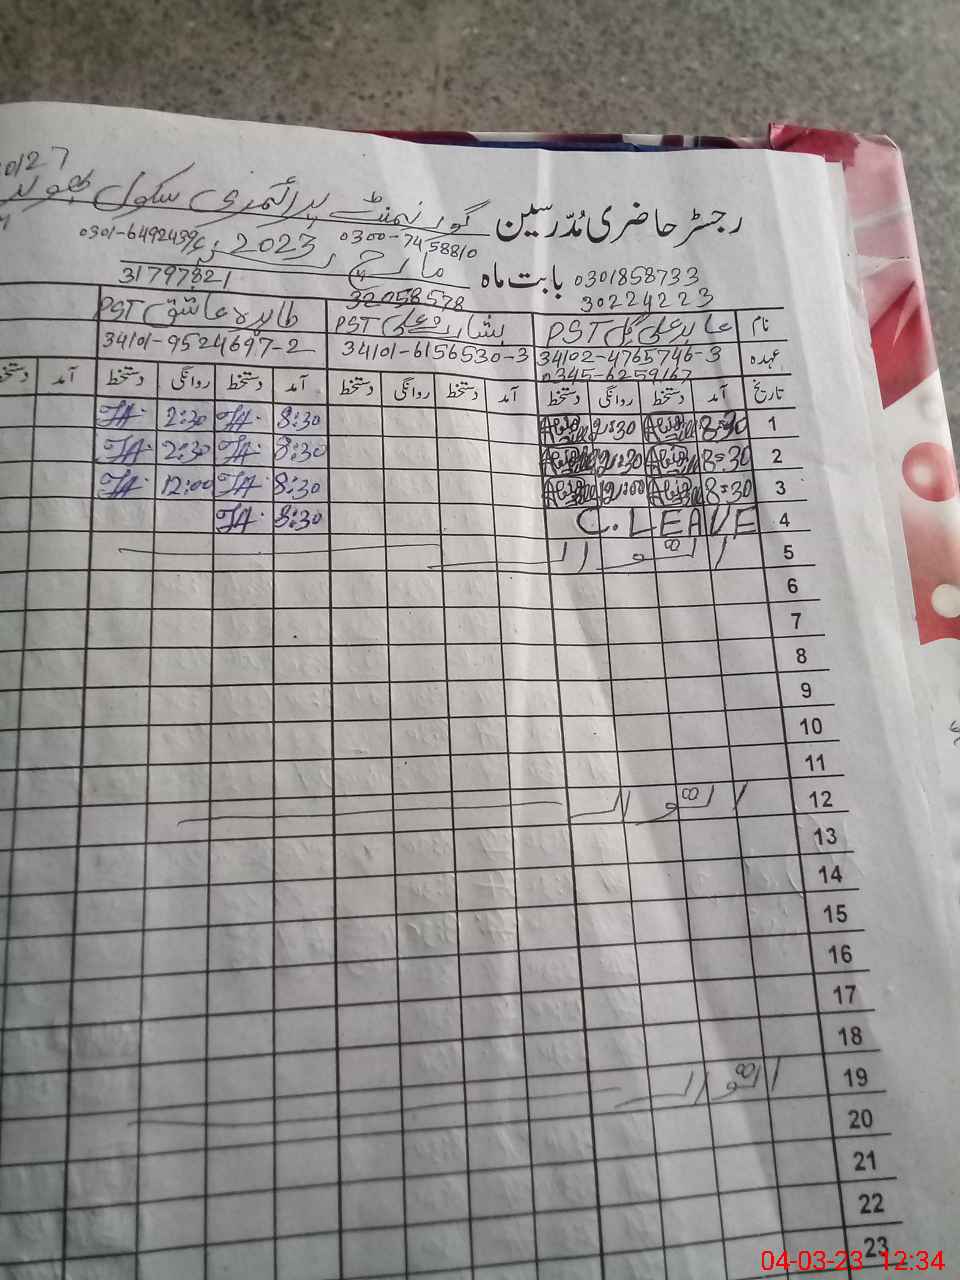 0127
رجسٹر حاضری مُدّرسین گورنمنٹ پرائمری سکول
0301-6492439 2023ء 0300-7458810
بابت ماہ مارچ 0301858733
31797821 32058578 30224223
نام عابد علی گل PST بشارت علی PST طاہرہ عاشق PST
عہدہ 34102-4765746-3 34101-6156530-3 34101-9524697-2
0345-6259167
تاریخ آمد دستخط روانگی دستخط آمد دستخط روانگی دستخط آمد دستخط روانگی دستخط آمد دستخط
1 8:30 2:30 8:30 TA. 2:30 TA.
2 8:30 2:30 8:30 TA. 2:30 TA.
3 8:30 12:00 8:30 TA. 12:00 TA.
4 C.LEAVE 8:30 TA.
5 اتوار
6
7
8
9
10
11
12 اتوار
13
14
15
16
17
18
19 اتوار
20
21
22
23
04-03-23 12:34